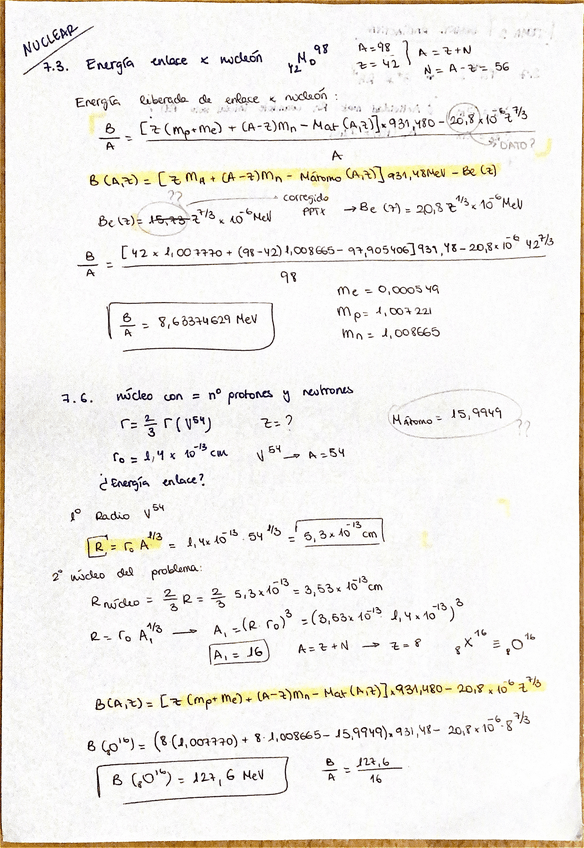 NUCLEAR
7.3. Energía enlace x nucleón ₄₂Mo⁹⁸ A=98 A = Z+N
Z=42 N = A-Z = 56
Energía liberada de enlace x nucleón:
B/A = [Z(mp+me) + (A-Z)mn - Mat(A,Z)]×931,480 - 20,8×10⁻⁶ Z^7/3 / A
¿DATO?
B(A,Z) = [Z MH + (A-Z)Mn - Mátomo(A,Z)] 931,48 MeV - Be(Z)
??
Be(Z) = 15,73 Z^7/3 × 10⁻⁶ MeV corregido PPTX → Be(Z) = 20,8 Z^7/3 × 10⁻⁶ MeV
B/A = [42 × 1,007770 + (98-42) 1,008665 - 97,905406] 931,48 - 20,8×10⁻⁶ 42^7/3 / 98
me = 0,000549
B/A = 8,63374629 MeV mp = 1,007221
mn = 1,008665
7.6. núcleo con = nº protones y neutrones
r = 2/3 r(V⁵⁴) Z=? Mátomo = 15,9949 ??
r₀ = 1,4 × 10⁻¹³ cm V⁵⁴ → A=54
¿Energía enlace?
1º Radio V⁵⁴
R = r₀ A^1/3 = 1,4×10⁻¹³ · 54^1/3 = 5,3×10⁻¹³ cm
2º núcleo del problema:
R núcleo = 2/3 R = 2/3 5,3×10⁻¹³ = 3,53×10⁻¹³ cm
R = r₀ A₁^1/3 → A₁ = (R · r₀)³ = (3,53×10⁻¹³ · 1,4×10⁻¹³)³
A₁ = 16 A = Z+N → Z=8 ₈X¹⁶ ≡ ₈O¹⁶
B(A,Z) = [Z(mp+me) + (A-Z)mn - Mat(A,Z)]×931,480 - 20,8×10⁻⁶ Z^7/3
B(₈O¹⁶) = (8(1,007770) + 8·1,008665 - 15,9949)×931,48 - 20,8×10⁻⁶·8^7/3
B(₈O¹⁶) = 127,6 MeV B/A = 127,6/16